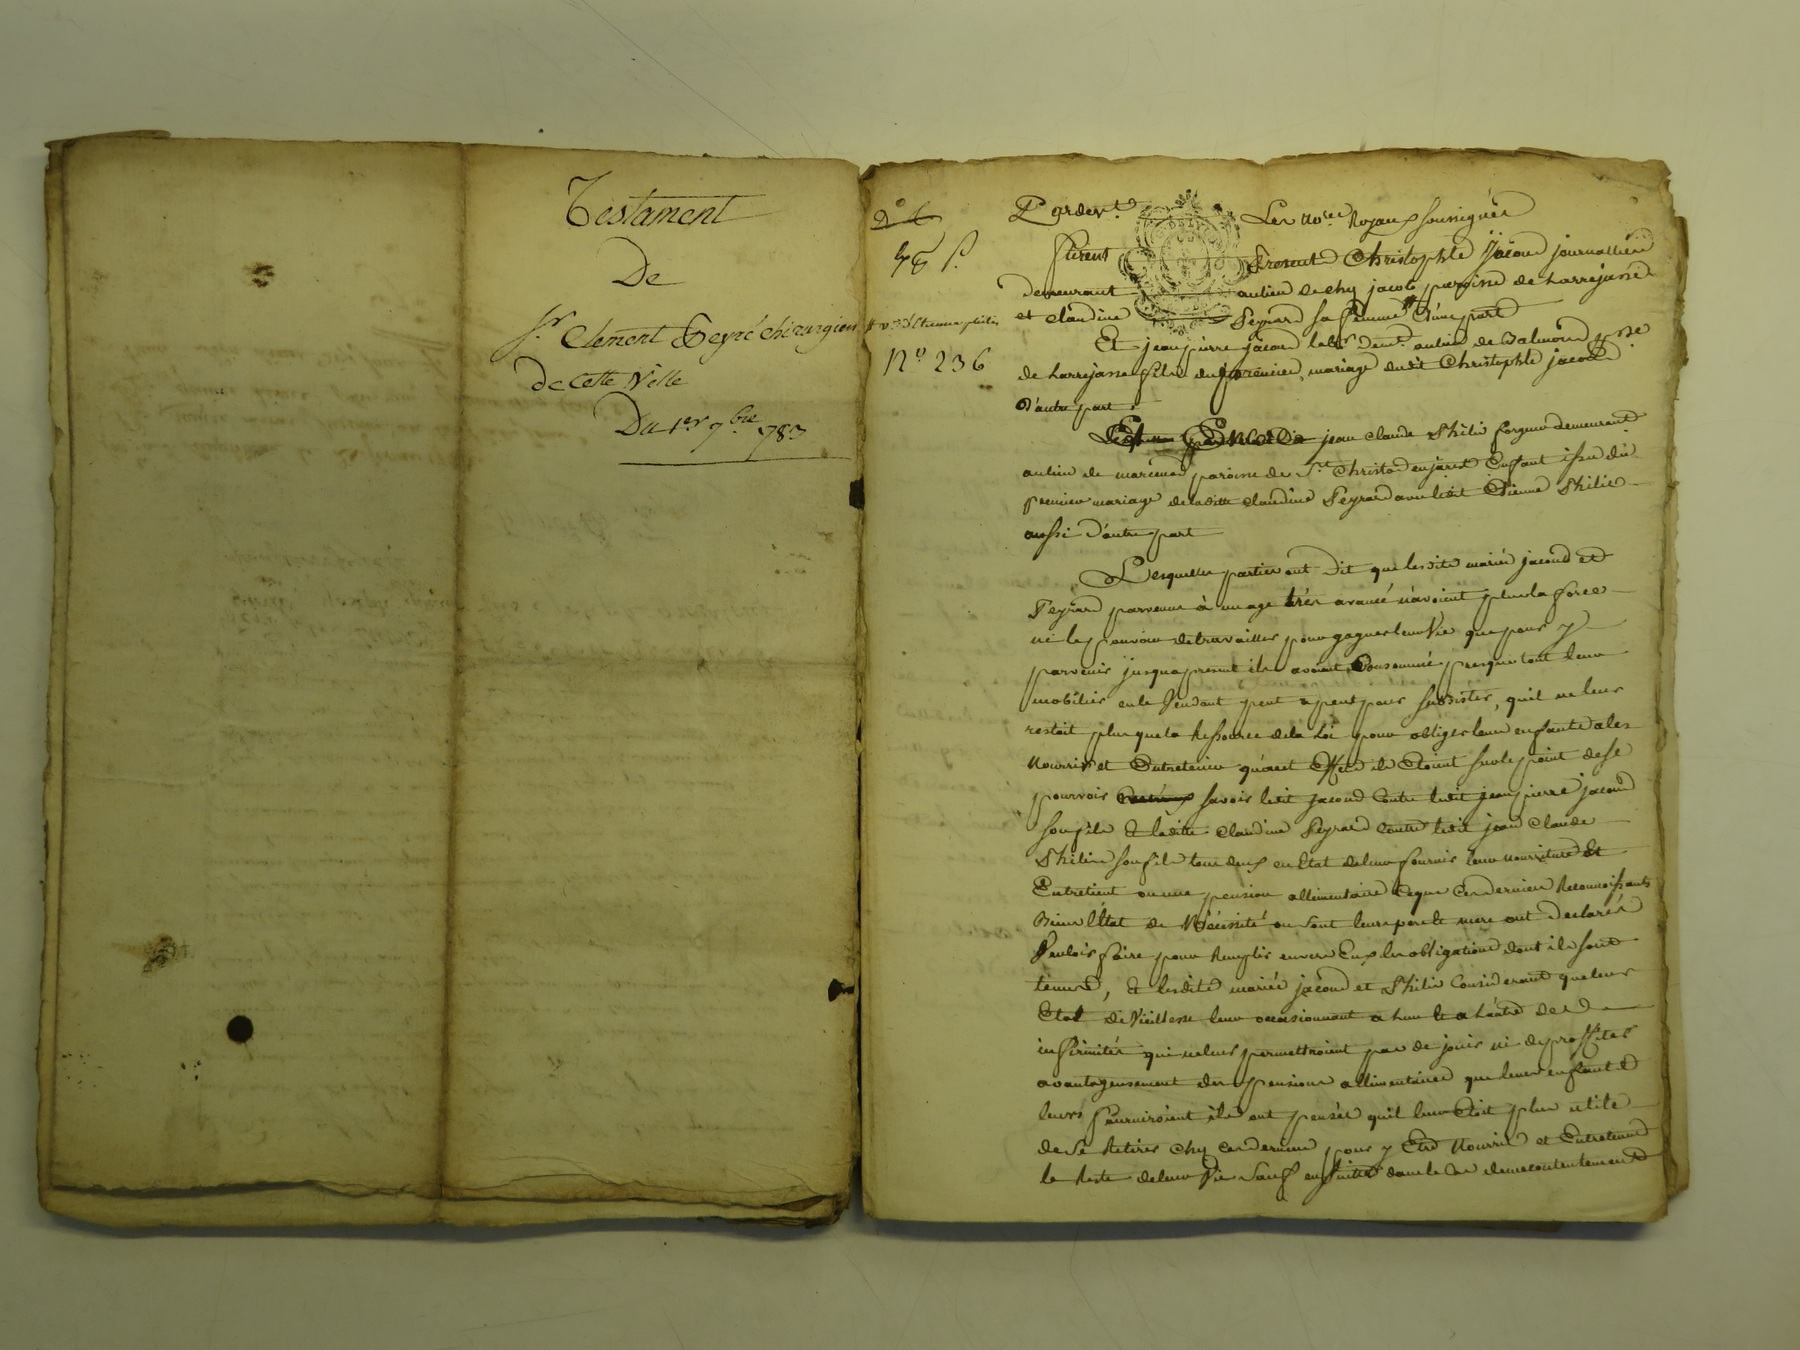 Testament
De
Sr. Clement Peyré chirurgien
De cette Ville
Du 1er 7bre 1783
78 f.
# v.e d'Etienne philis
N.o 236
Pardev.t Les no.res Royaux soussignés
furent Present Christophle Jacoud journallier
demeurant au lieu de chy jacob paroisse de Larrejasse
et claudine Peyrard sa femme # d'une part
Et jean pierre jacoud lab.r dem.t au lieu de Balmond p.sse
de Larrejasse fils du premier mariage dudit Christophle jacoud
d'autre part.
Et jean claude Philis forgeur demeurant
au lieu de marcenod paroisse de St Christo en jarest Enfant issu du
premier mariage de laditte claudine Peyrard avec ledit Etienne Philis
aussi d'autre part
Lesquelles parties ont dit que lesdits mariés jacoud et
Peyrard parvenus à un age très avancé n'avoient plus la force
ni le pouvoir de travailler pour gagner leur Vie que pour y
parvenir jusqu'a present ils avoient Consommé presque tout leur
mobilier en le Vendant peut a peut pour subsister, qu'il ne leur
restoit plus que la Ressource de la Loi pour obliger leurs enfants a les
Nourrir et Entretenir qu'a cet Effet ils Etoient sur le point de se
pourvoir savoir ledit jacoud Contre ledit jean pierre jacoud
son fils & laditte claudine Peyrard contre ledit jean Claude
Philis son fils tous deux en Etat de leur fournir leur nourriture et
Entretient ou une pension allimentaire ce que Ces derniers Reconnoissants
Bien l'État de Nécessité ou sont leurs pere & mere ont declarés
Vouloir faire pour Remplir envers Eux les obligations dont ils sont
tenus, & lesdits mariés jacoud et Philis Considerant que leur
Etat de Vieillesse leur occasionnant a l'un & a l'autre des
infirmités qui ne leur permettroient pas de jouir ni de proffiter
avantageusement des pensions allimentaires que leurs enfants
leurs fourniroient ils ont pensés qu'il leur Etoit plus utile
de se Retirer chy ces derniers pour y Etre Nourris et Entretenus
le Reste de leur Vie sauf ensuitte dans le Cas de mecontentement